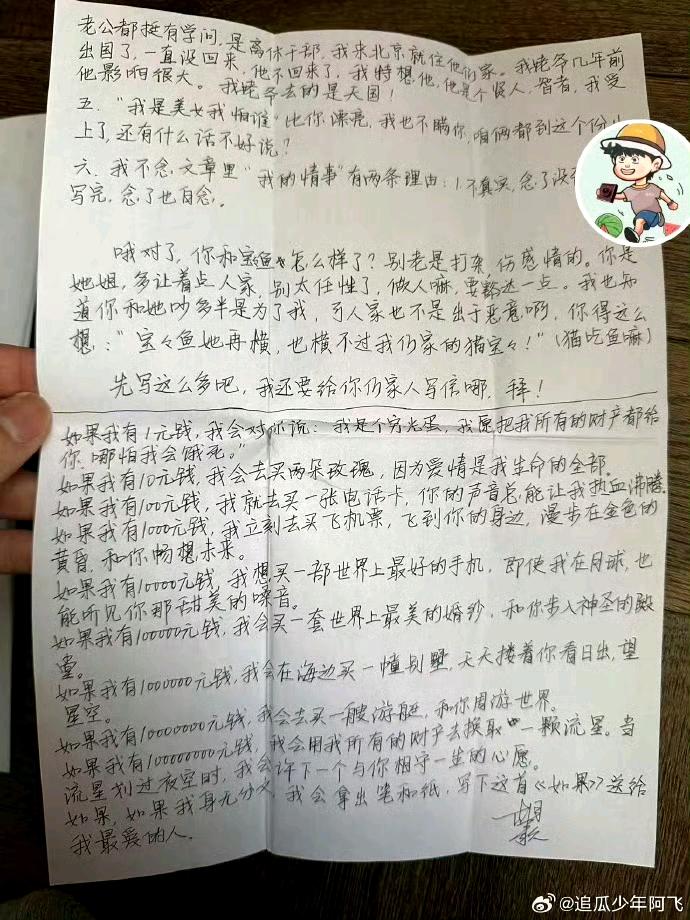 老公都挺有学问,是离休干部,我来北京就住他们家。我姥爷几年前
出国了,一直没回来,他不回来了,我特想他,他是个怪人,智者,我受
他影响很大。我姥爷去的是天国!
五.“我是美女我怕谁”比你漂亮,我也不瞒你,咱俩都到这个份儿
上了,还有什么话不好说?
六.我不念.文章里“我的情事”有两条理由:1.不真实,念了没
写完,念了也白念。
哦对了,你和宝鱼怎么样了?别老是打架,伤感情的。你是
她姐,多让着点人家,别太任性了,做人嘛,要豁达一点。我也知
道你和她吵多半是为了我,可人家也不是出于恶意啊,你得这么
想:“宝々鱼她再横,也横不过我们家的猫宝々!”(猫吃鱼嘛)
先写这么多吧,我还要给你们家人写信哪.拜!
如果我有1元钱,我会对你说:我是个穷光蛋,我愿把我所有的财产都给
你,哪怕我会饿死。”
如果我有10元钱,我会去买两朵玫瑰,因为爱情是我生命的全部.
如果我有100元钱,我就去买一张电话卡,你的声音总能让我热血沸腾.
如果我有1000元钱,我立刻去买飞机票,飞到你的身边,漫步在金色的
黄昏,和你畅想未来。
如果我有10000元钱,我想买一部世界上最好的手机,即使我在月球,也
能听见你那甜美的嗓音。
如果我有100000元钱,我会买一套世界上最美的婚纱,和你步入神圣的殿
堂。
如果我有1000000元钱,我会在海边买一幢别墅,天天搂着你看日出,望
星空。
如果我有10000000元钱,我会去买一艘游艇,和你周游世界。
如果我有100000000元钱,我会用我所有的财产去换取一颗流星。当
流星划过夜空时,我会许下一个与你相守一生的心愿。
如果,如果我身无分文,我会拿出笔和纸,写下这首《如果》送给
我最爱的人.
@追瓜少年阿飞